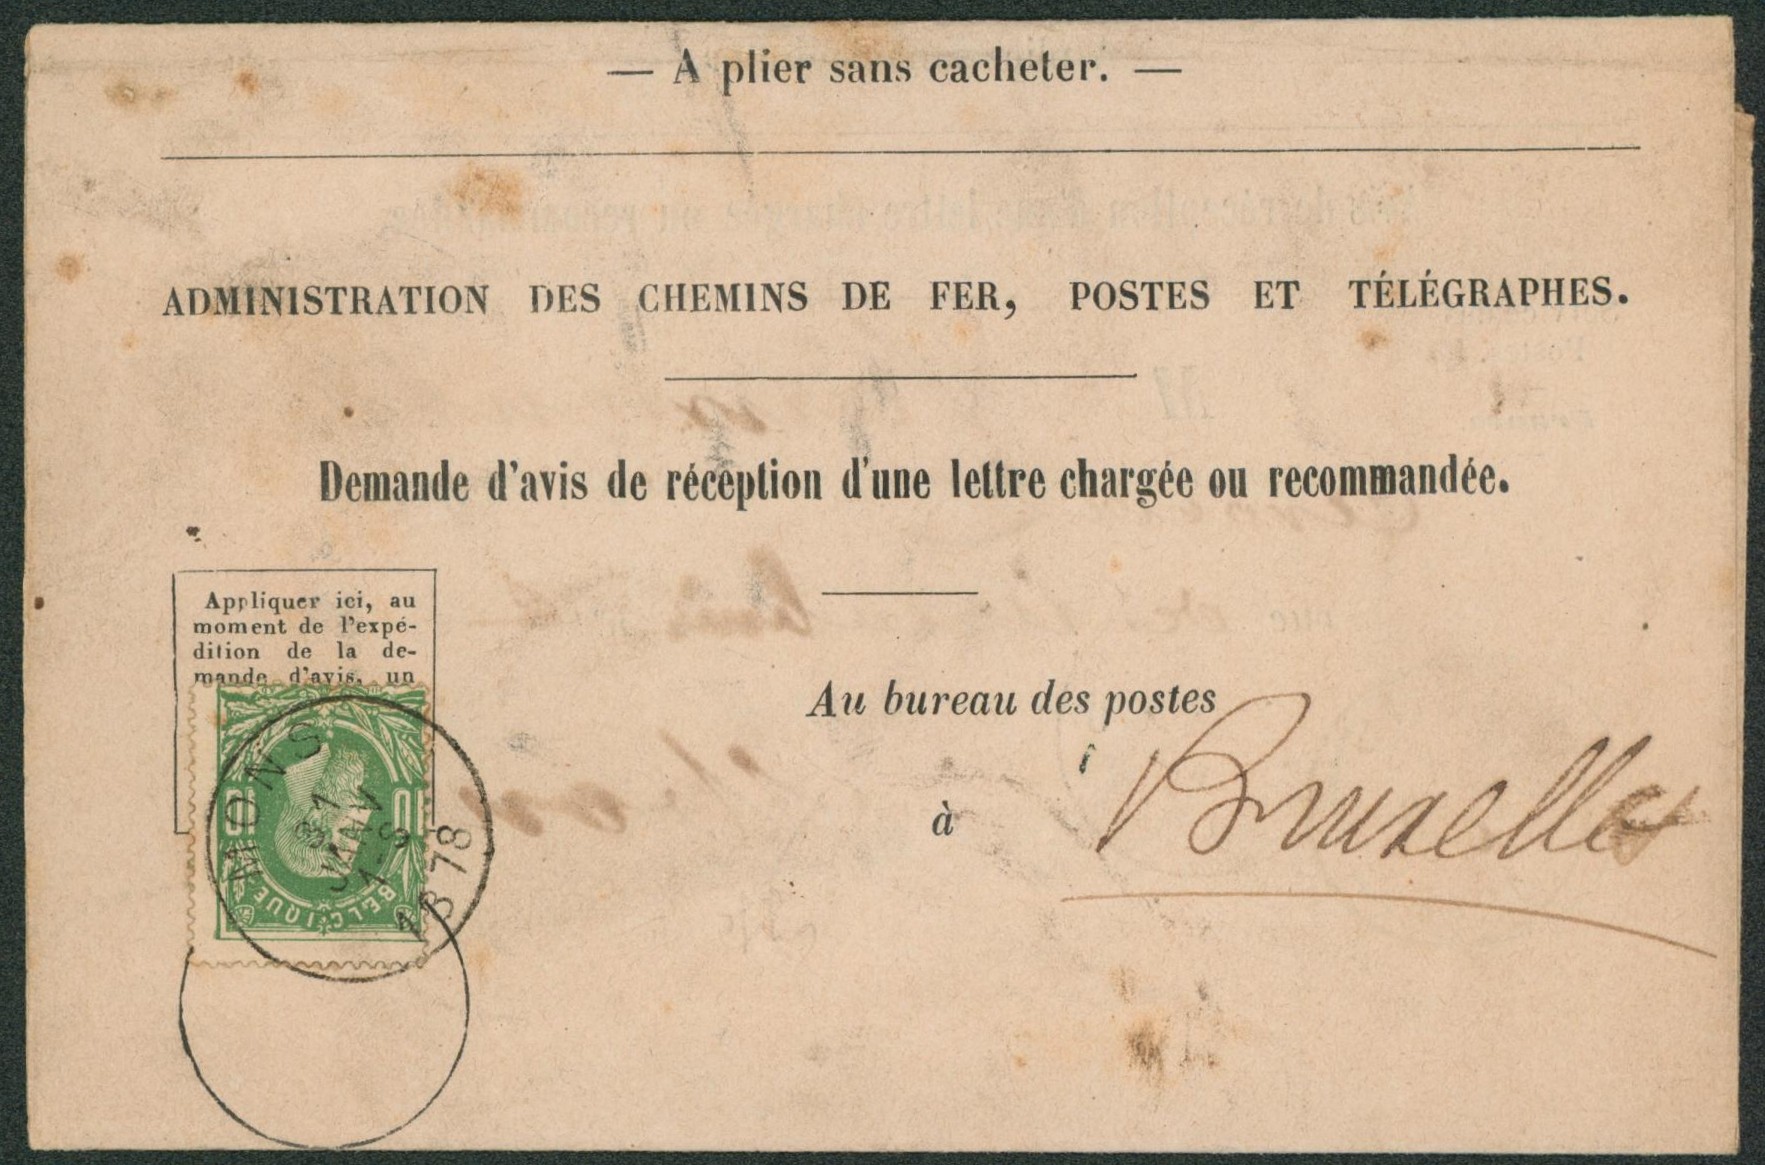 — A plier sans cacheter. —
ADMINISTRATION DES CHEMINS DE FER, POSTES ET TÉLÉGRAPHES.
Demande d'avis de réception d'une lettre chargée ou recommandée.
Appliquer ici, au
moment de l'expé-
dition de la de-
mande d'avis, un
Au bureau des postes
à Bruxelles
10 10
BELGIQUE
MONS
31
JANV
1-S
1878